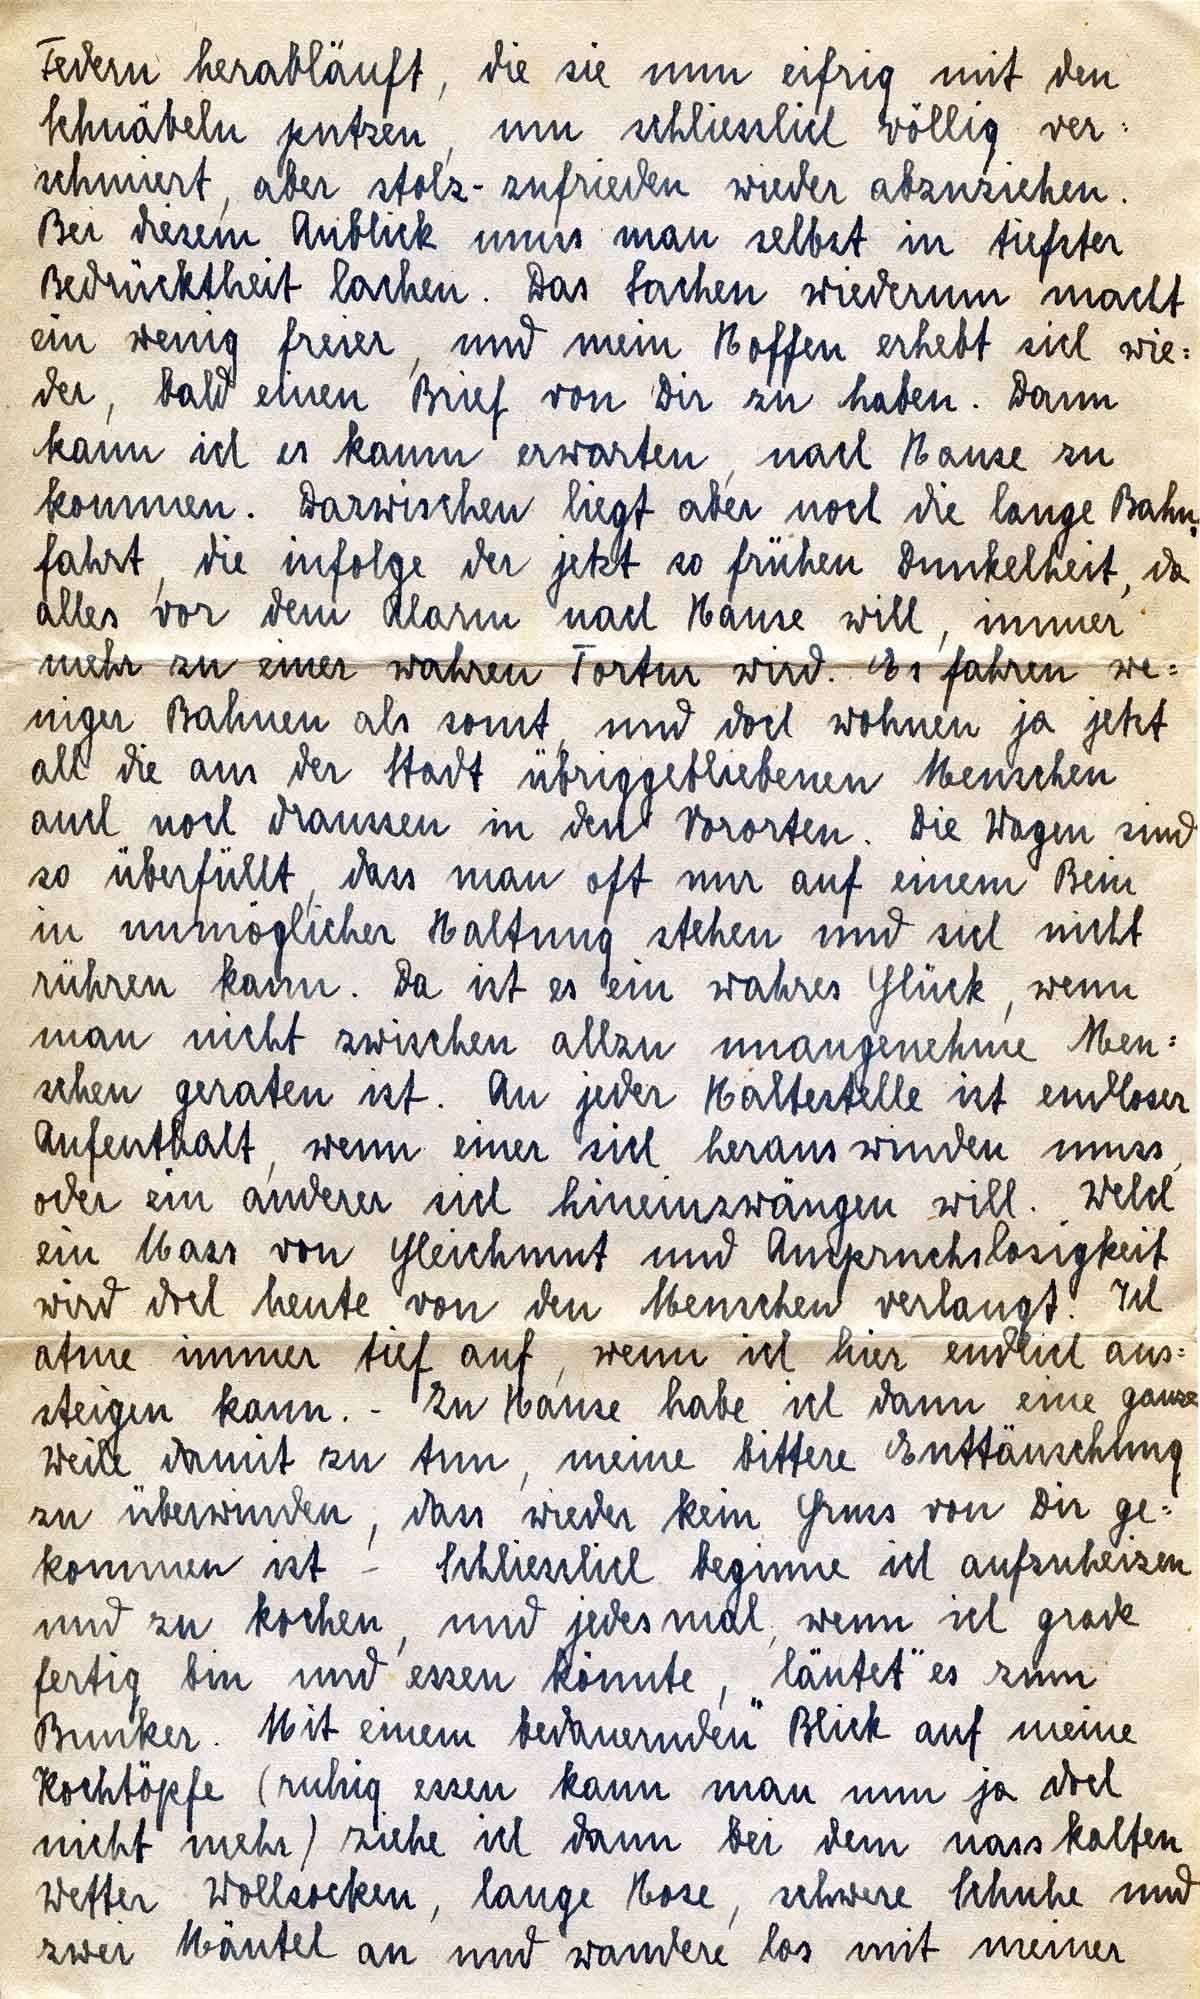 Federn herabläuft, die sie nun eifrig mit den
Schnäbeln putzen, um schliesslich völlig ver=
schmiert, aber stolz-zufrieden wieder abzuziehen.
Bei diesem Anblick muss man selbst in tiefster
Bedrücktheit lachen. Das Lachen wiederum macht
ein wenig freier, und mein Hoffen erhebt sich wie=
der, bald einen Brief von Dir zu haben. Dann
kann ich es kaum erwarten, nach Hause zu
kommen. Dazwischen liegt aber noch die lange Bahn=
fahrt, die infolge der jetzt so frühen Dunkelheit, da
alles vor dem Alarm nach Hause will, immer
mehr zu einer wahren Tortur wird. Es fahren we=
niger Bahnen als sonst, und doch wohnen ja jetzt
all die aus der Stadt übriggebliebenen Menschen
auch noch draussen in den Vororten. Die Wagen sind
so überfüllt, dass man oft nur auf einem Bein
in unmöglicher Haltung stehen und sich nicht
rühren kann. Da ist es ein wahres Glück, wenn
man nicht zwischen allzu unangenehme Men=
schen geraten ist. An jeder Haltestelle ist endloser
Aufenthalt, wenn einer sich herauswinden muss,
oder ein anderer sich hineinzwängen will. Welch
ein Mass von Gleichmut und Anspruchslosigkeit
wird doch heute von den Menschen verlangt! Ich
atme immer tief auf, wenn ich hier endlich aus=
steigen kann. - Zu Hause habe ich dann eine ganze
Weile damit zu tun, meine bittere Enttäuschung
zu überwinden, dass wieder kein Gruss von Dir ge=
kommen ist - Schliesslich beginne ich aufzuheizen
und zu kochen, und jedesmal, wenn ich grade
fertig bin und essen könnte, „läutet" es zum
Bunker. Mit einem bedauernden Blick auf meine
Kochtöpfe (ruhig essen kann man nun ja doch
nicht mehr) ziehe ich dann bei dem nasskalten
Wetter Wollsocken, lange Hose, schwere Schuhe und
zwei Mäntel an und wandere los mit meiner